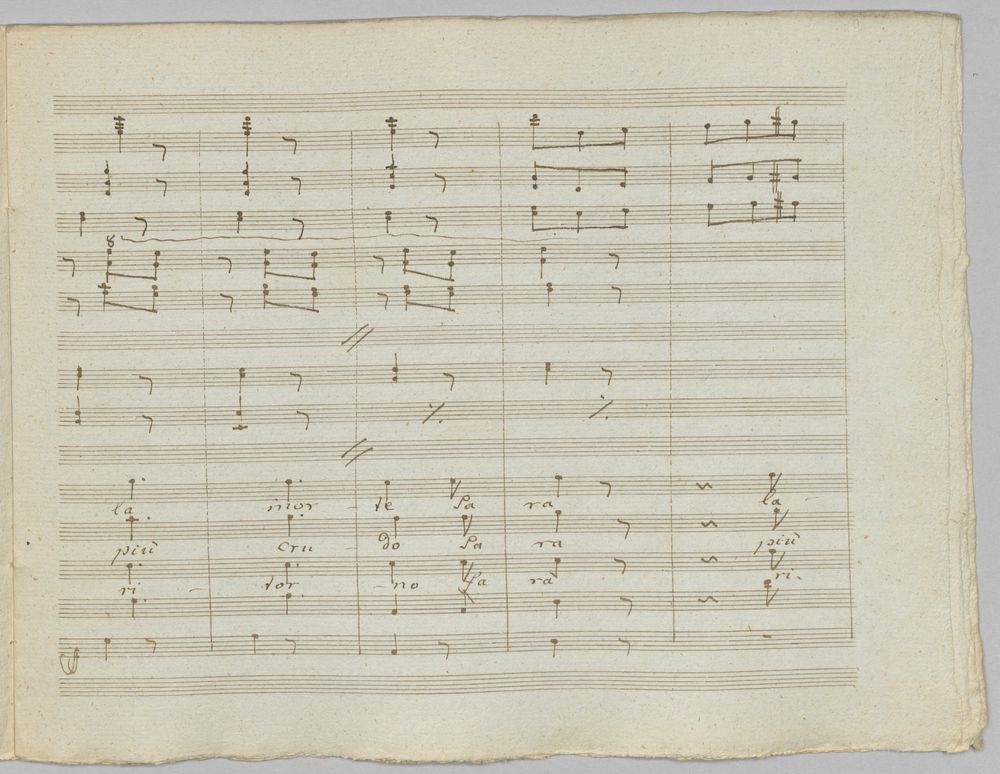 8
la mor - te sa ra la -
più cru - do sa ra più
ri - tor - no sa rà ri -